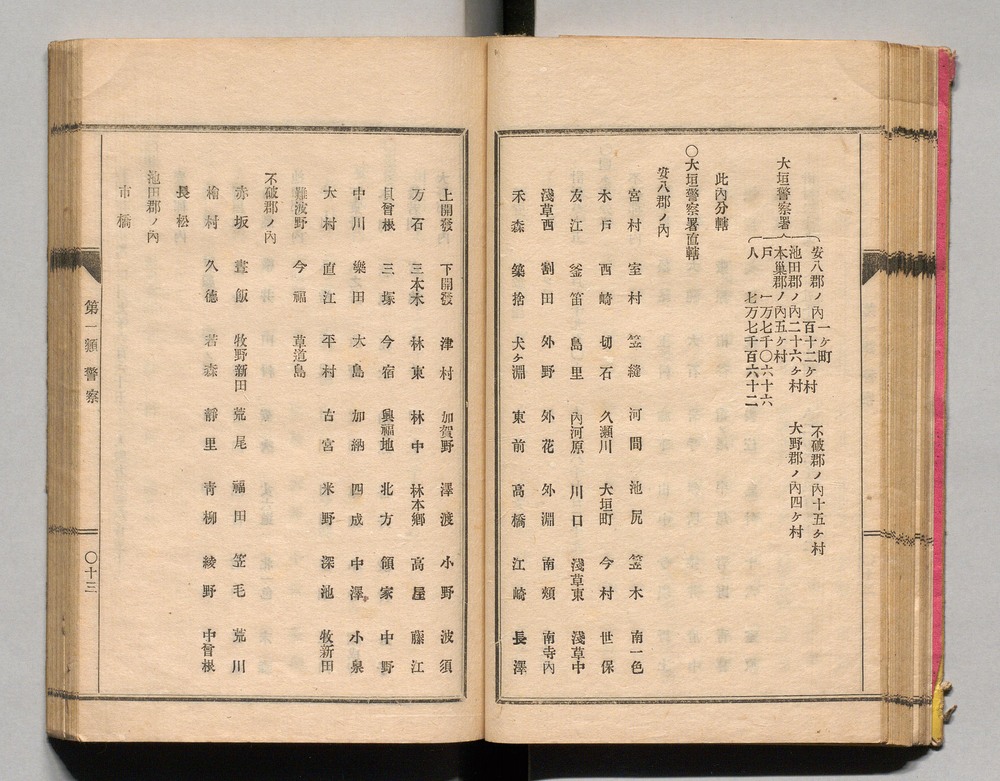 大垣警察署
安八郡ノ內一ヶ町
百十二ヶ村
不破郡ノ內十五ヶ村
池田郡ノ內二十六ヶ村
大野郡ノ內四ヶ村
本巢郡ノ內五ヶ村
戶 一万七千〇六十六
人 七万七千百六十二
此內分轄
〇大垣警察署直轄
安八郡ノ內
宮村 室村 笠縫 河間 池尻 笠木 南一色
木戶 西崎 切石 久瀨川 大垣町 今村 世保
友江 釜笛 島里 內河原 川口 淺草東 淺草中
淺草西 割田 外野 外花 外淵 南頰 南寺內
禾森 築捨 犬ヶ淵 東前 高橋 江崎 長澤
上開發 下開發 津村 加賀野 澤渡 小野 波須
万石 三本木 林東 林中 林本鄉 高屋 藤江
貝曾根 三塚 今宿 興福地 北方 領家 中野
中川 樂田 大島 加納 四成 中澤 小泉
大村 直江 平村 古宮 米野 深池 牧新田
難波野 今福 草道島
不破郡ノ內
赤坂 晝飯 牧野新田 荒尾 福田 笠毛 荒川
檜村 久德 若森 靜里 靑柳 綾野 中曾根
長松
池田郡ノ內
市橋
第一類 警察
〇十三